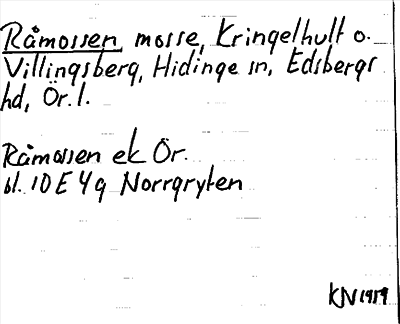 Råmossen, mosse, Kringelhult o.
Villingsberg, Hidinge sn, Edsbergs
hd, Ör. l.
Råmossen ek Ör.
bl. 10 E 4 g Norrgryten
KN 1959